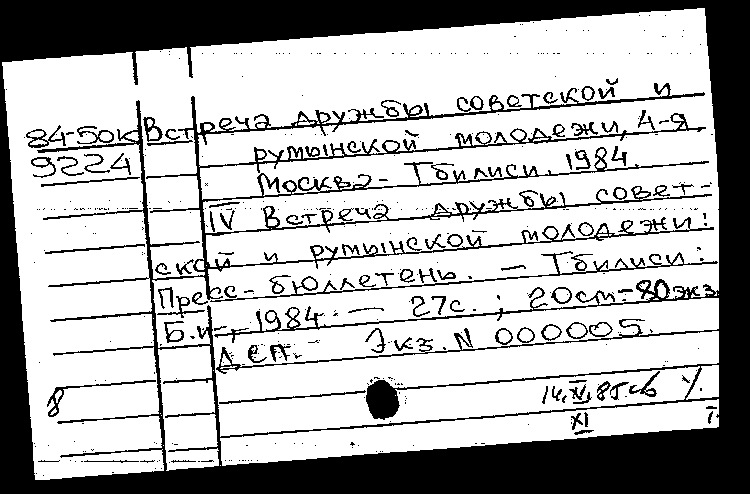 84-50к Встреча дружбы советской и
9224 румынской молодежи, 4-я.
Москва - Тбилиси. 1984.
IV Встреча дружбы совет-
ской и румынской молодежи:
Пресс-бюллетень. - Тбилиси:
Б.и., 1984. - 27с.; 20см - 80экз.
Деп. Экз. N 000005.
8
XI